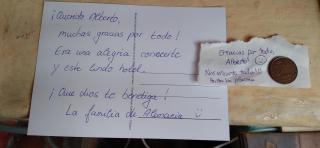 ¡Querido Alberto,
muchas gracias por todo!
Era una alegría conocerte
y este lindo hotel.
¡Que dios te bendiga!
La familia de Alemania ☺
Gracias por todo,
Alberto! ☺